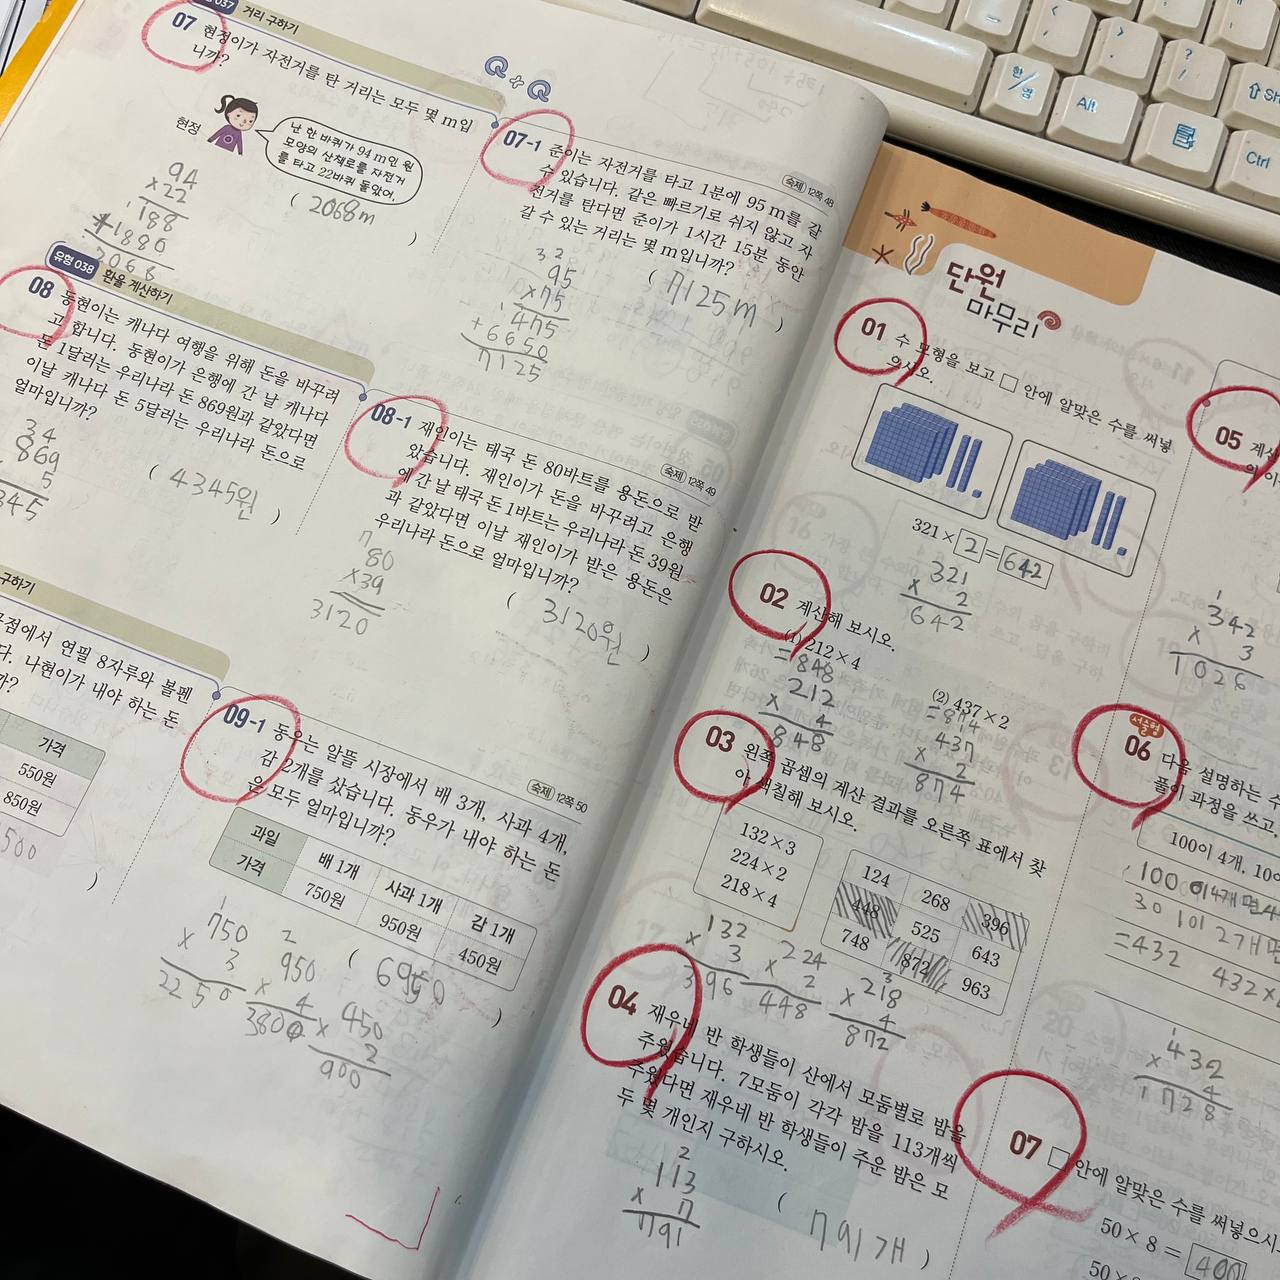 037 거리 구하기
07 현정이가 자전거를 탄 거리는 모두 몇 m입
니까?
현정
난 한 바퀴가 94 m인 원
모양의 산책로를 자전거
를 타고 22바퀴 돌았어.
( 2068m )
94
×22
188
+1880
2068
Q+Q
07-1 준이는 자전거를 타고 1분에 95 m를 갈
수 있습니다. 같은 빠르기로 쉬지 않고 자
전거를 탄다면 준이가 1시간 15분 동안
갈 수 있는 거리는 몇 m입니까?
숙제 12쪽 48
( 7125m )
32
95
×75
475
+6650
7125
유형 038 환율 계산하기
08 동현이는 캐나다 여행을 위해 돈을 바꾸려
고 합니다. 동현이가 은행에 간 날 캐나다
돈 1달러는 우리나라 돈 869원과 같았다면
이날 캐나다 돈 5달러는 우리나라 돈으로
얼마입니까?
( 4345원 )
34
869
5
345
08-1 재인이는 태국 돈 80바트를 용돈으로 받
았습니다. 재인이가 돈을 바꾸려고 은행
에 간 날 태국 돈 1바트는 우리나라 돈 39원
과 같았다면 이날 재인이가 받은 용돈은
우리나라 돈으로 얼마입니까?
숙제 12쪽 49
( 3120원 )
7
80
×39
3120
구하기
점에서 연필 8자루와 볼펜
다. 나현이가 내야 하는 돈
까?
가격
550원
850원
500
)
09-1 동우는 알뜰 시장에서 배 3개, 사과 4개,
감 2개를 샀습니다. 동우가 내야 하는 돈
은 모두 얼마입니까?
숙제 12쪽 50
과일 배 1개 사과 1개 감 1개
가격 750원 950원 450원
( 6950 )
1
750
× 3
2250
2
950
× 4
3800
450
× 2
900
단원
마무리
01 수 모형을 보고 □ 안에 알맞은 수를 써넣
으시오.
321 × 2 = 642
321
× 2
642
02 계산해 보시오.
(1) 212 × 4
=848
212
× 4
848
(2) 437 × 2
=874
437
× 2
874
03 왼쪽 곱셈의 계산 결과를 오른쪽 표에서 찾
아 색칠해 보시오.
132 × 3
224 × 2
218 × 4
124 268 396
448 525 643
748 872 963
132
× 3
396
224
× 2
448
3
218
× 4
872
04 재우네 반 학생들이 산에서 모둠별로 밤을
주웠습니다. 7모둠이 각각 밤을 113개씩
주웠다면 재우네 반 학생들이 주운 밤은 모
두 몇 개인지 구하시오.
2
113
× 7
791
( 791개 )
05 계산
1
342
× 3
1026
서술형
06 다음 설명하는 수
풀이 과정을 쓰고,
100이 4개, 10이
100이 4개면 4
30 10이 2개면
=432 432×
1
432
× 4
1728
07 □ 안에 알맞은 수를 써넣으시오
50 × 8 = 400
50 ×
한/영
Alt
Ctrl